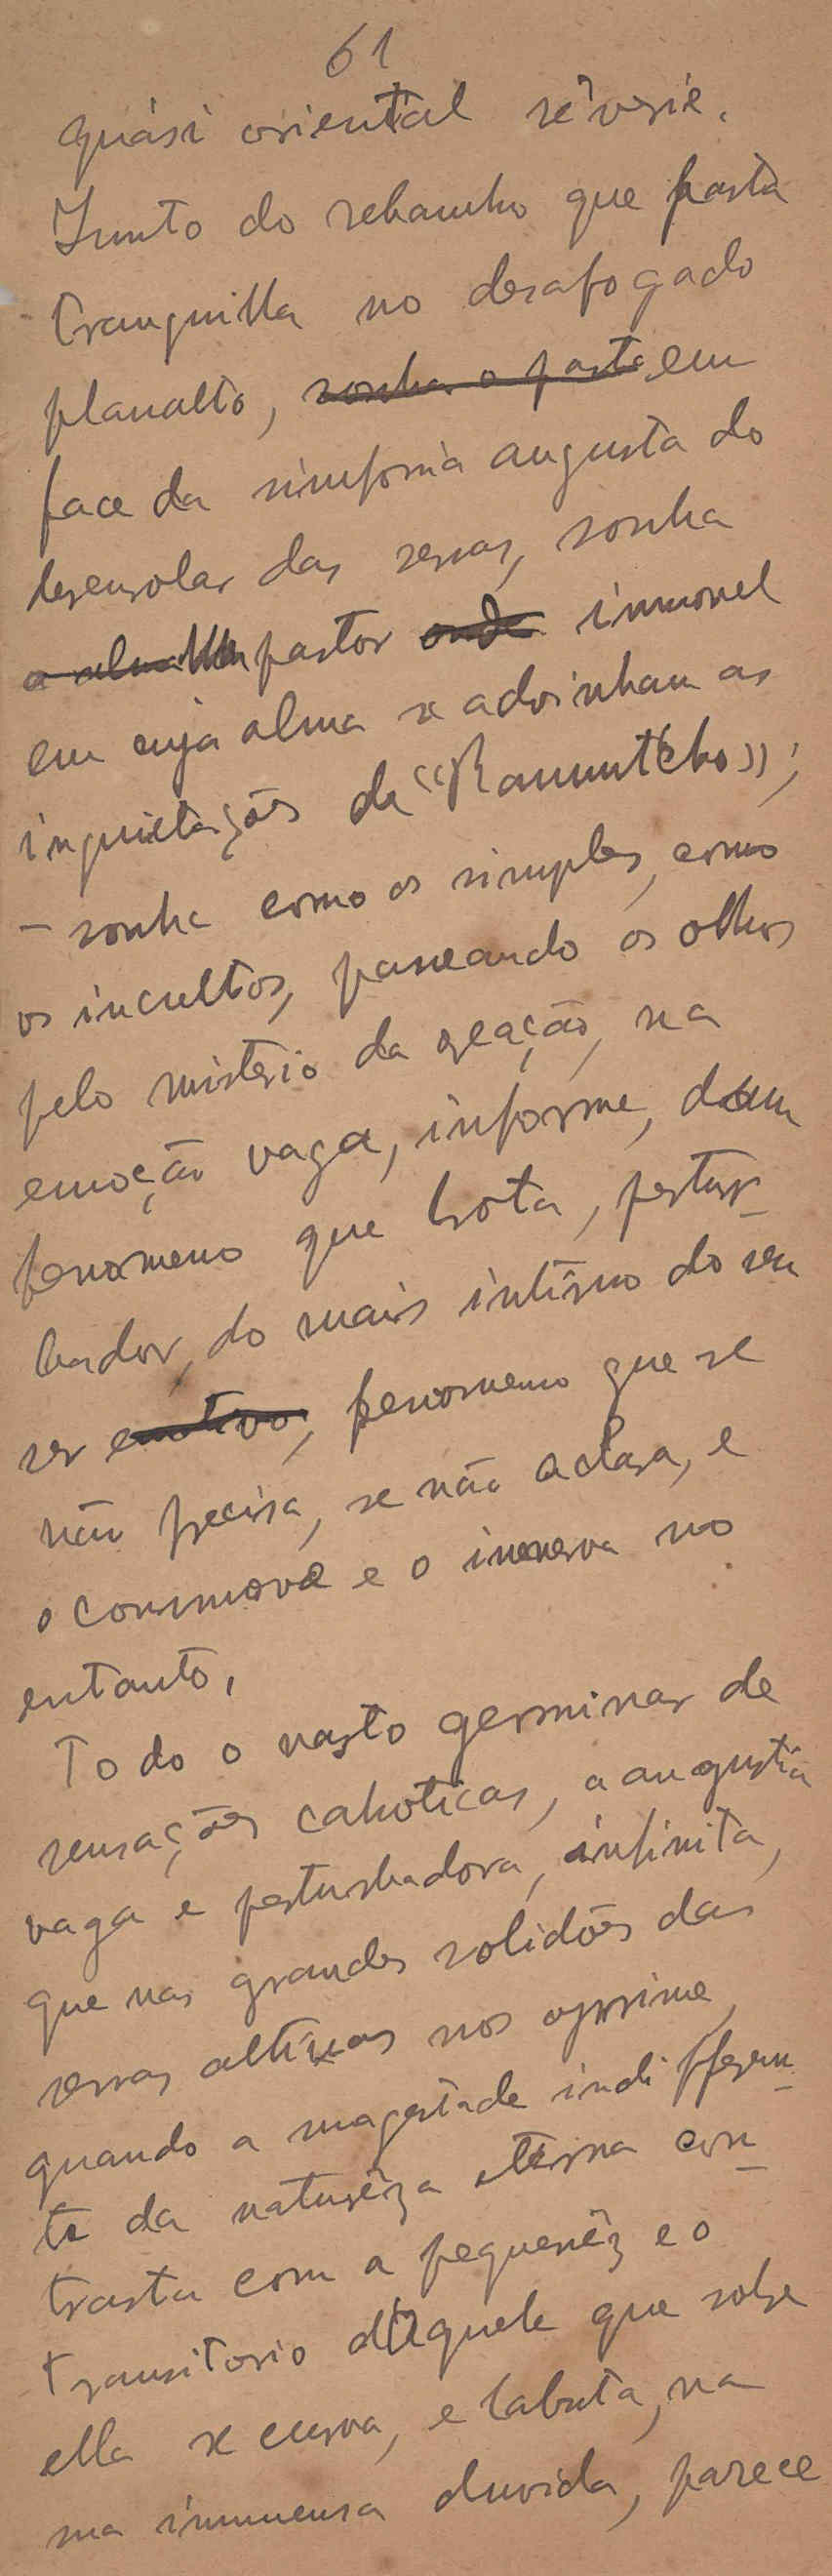 61
quási oriental rêverie.
Junto do rebanho que pasta
tranquilla no desafogado
planalto, sonha o pasto em
face da simfonia augusta do
desenrolar das serras, sonha
o pastor onde immovel
em cuja alma se advinham as
inquietações de «Ramuntcho»;
– sonha como os simples, como
os incultos, passeando os olhos
pelo misterio da creação, na
emoção vaga, informe, dum
fenomeno que brota, pertur-
bador, do mais intimo do seu
ser emotivo, fenomeno que se
não precisa, se não aclara, e
o commove e o innerva no
entanto.
Todo o vasto germinar de
sensações cahoticas, a angustia
vaga e perturbadora, infinita,
que nas grandes solidões das
serras altivas nos opprime,
quando a magestade indifferen-
te da naturêza eterna con-
trasta com a pequenêz e o
transitorio daquele que sobre
ella se curva, e labuta, na
sua immensa duvida, parece